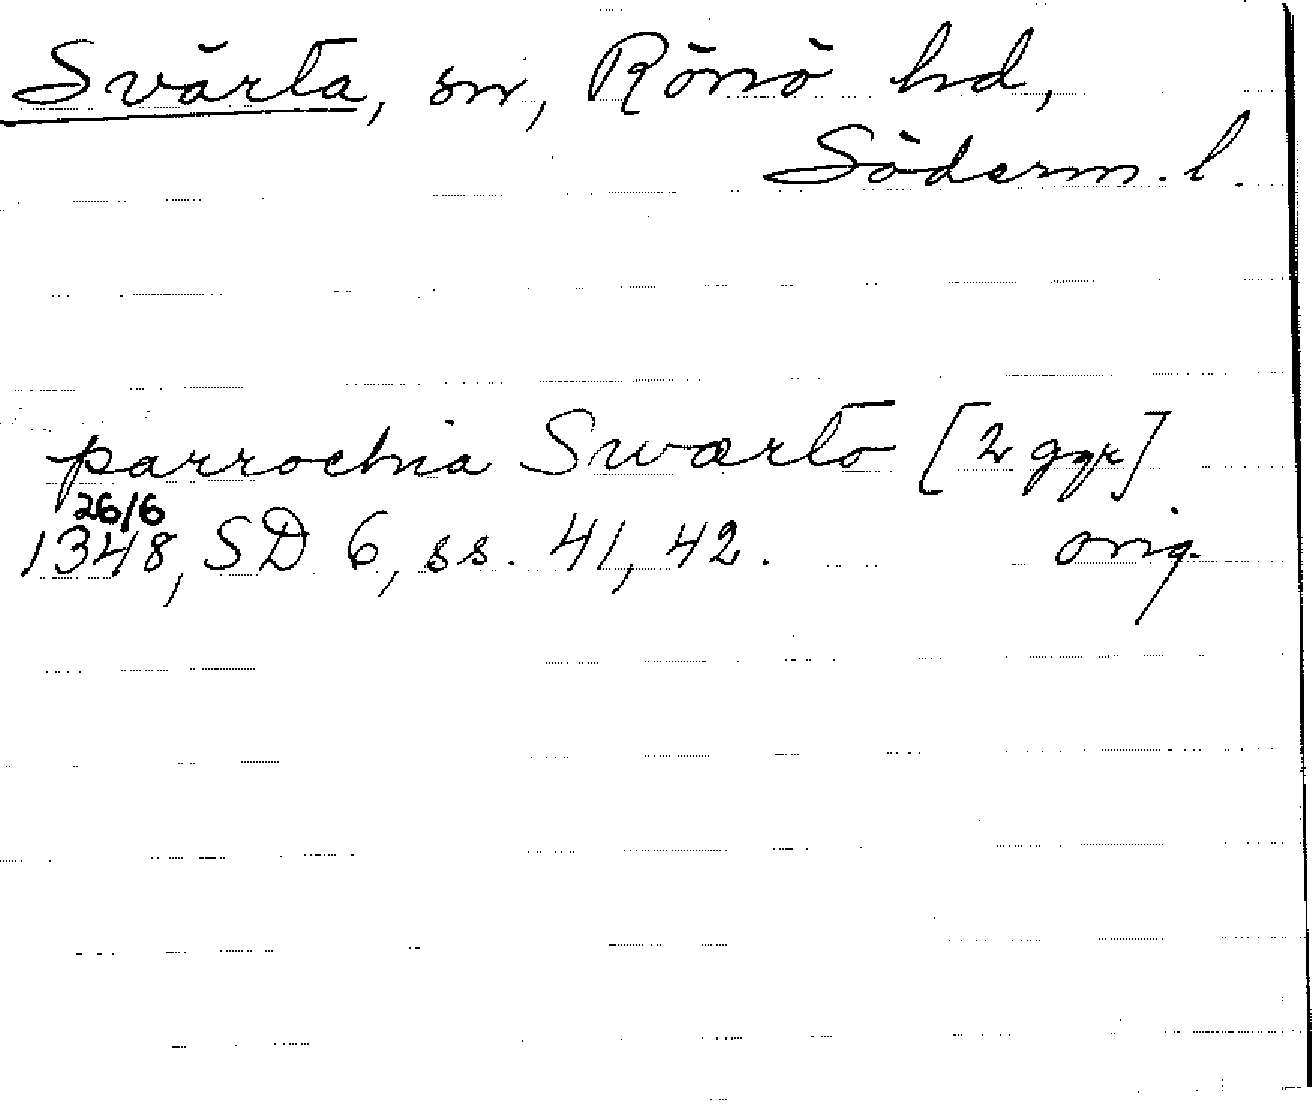 Svärta, sn, Rönö hd,
Söderm. l.
parrochia Swærto [2 ggr]
26/6
1348, SD 6, ss. 41, 42. orig.